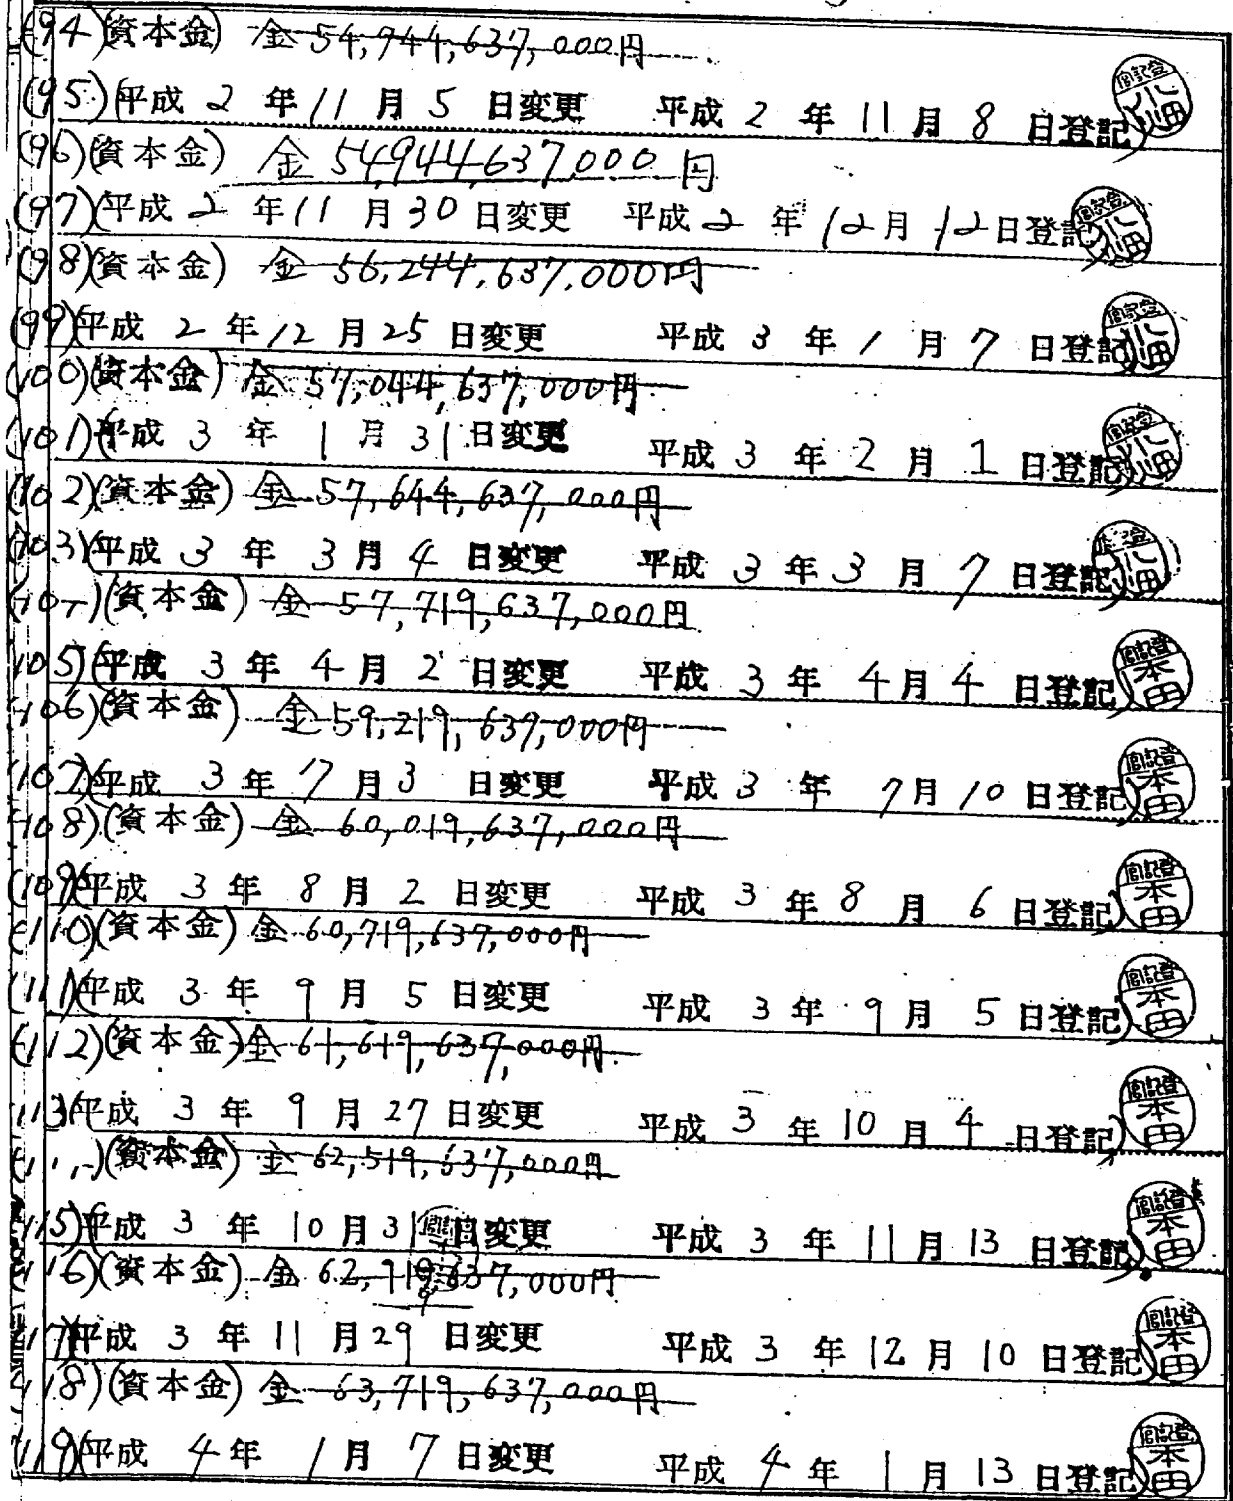 (94)(資本金) 金 54,944,637,000円
(95)(平成 2 年 11 月 5 日変更 平成 2 年 11 月 8 日登記) 登記官 小畑
(96)(資本金) 金 54,944,637,000 円
(97)(平成 2 年 11 月 30 日変更 平成 2 年 12 月 12 日登記) 登記官 小畑
(98)(資本金) 金 56,244,637,000円
(99)(平成 2 年 12 月 25 日変更 平成 3 年 1 月 7 日登記) 登記官 小畑
(100)(資本金) 金 57,044,637,000円
(101)(平成 3 年 1 月 31 日変更 平成 3 年 2 月 1 日登記) 登記官 小畑
(102)(資本金) 金 57,644,637,000円
(103)(平成 3 年 3 月 4 日変更 平成 3 年 3 月 7 日登記) 登記官 小畑
(資本金) 金 57,719,637,000円
(105)(平成 3 年 4 月 2 日変更 平成 3 年 4 月 4 日登記) 登記官 本田
(106)(資本金) 金 59,219,637,000円
(107)(平成 3 年 7 月 3 日変更 平成 3 年 7 月 10 日登記) 登記官 本田
(108)(資本金) 金 60,019,637,000円
(109)(平成 3 年 8 月 2 日変更 平成 3 年 8 月 6 日登記) 登記官 本田
(110)(資本金) 金 60,719,637,000円
(111)(平成 3 年 9 月 5 日変更 平成 3 年 9 月 5 日登記) 登記官 本田
(112)(資本金) 金 61,619,637,000円
(113)(平成 3 年 9 月 27 日変更 平成 3 年 10 月 4 日登記) 登記官 本田
(資本金) 金 62,519,637,000円
(115)(平成 3 年 10 月 31 日変更 平成 3 年 11 月 13 日登記) 登記官 本田
(116)(資本金) 金 62,919,637,000円
(117)(平成 3 年 11 月 29 日変更 平成 3 年 12 月 10 日登記) 登記官 本田
(118)(資本金) 金 63,719,637,000円
(119)(平成 4 年 1 月 7 日変更 平成 4 年 1 月 13 日登記) 登記官 本田